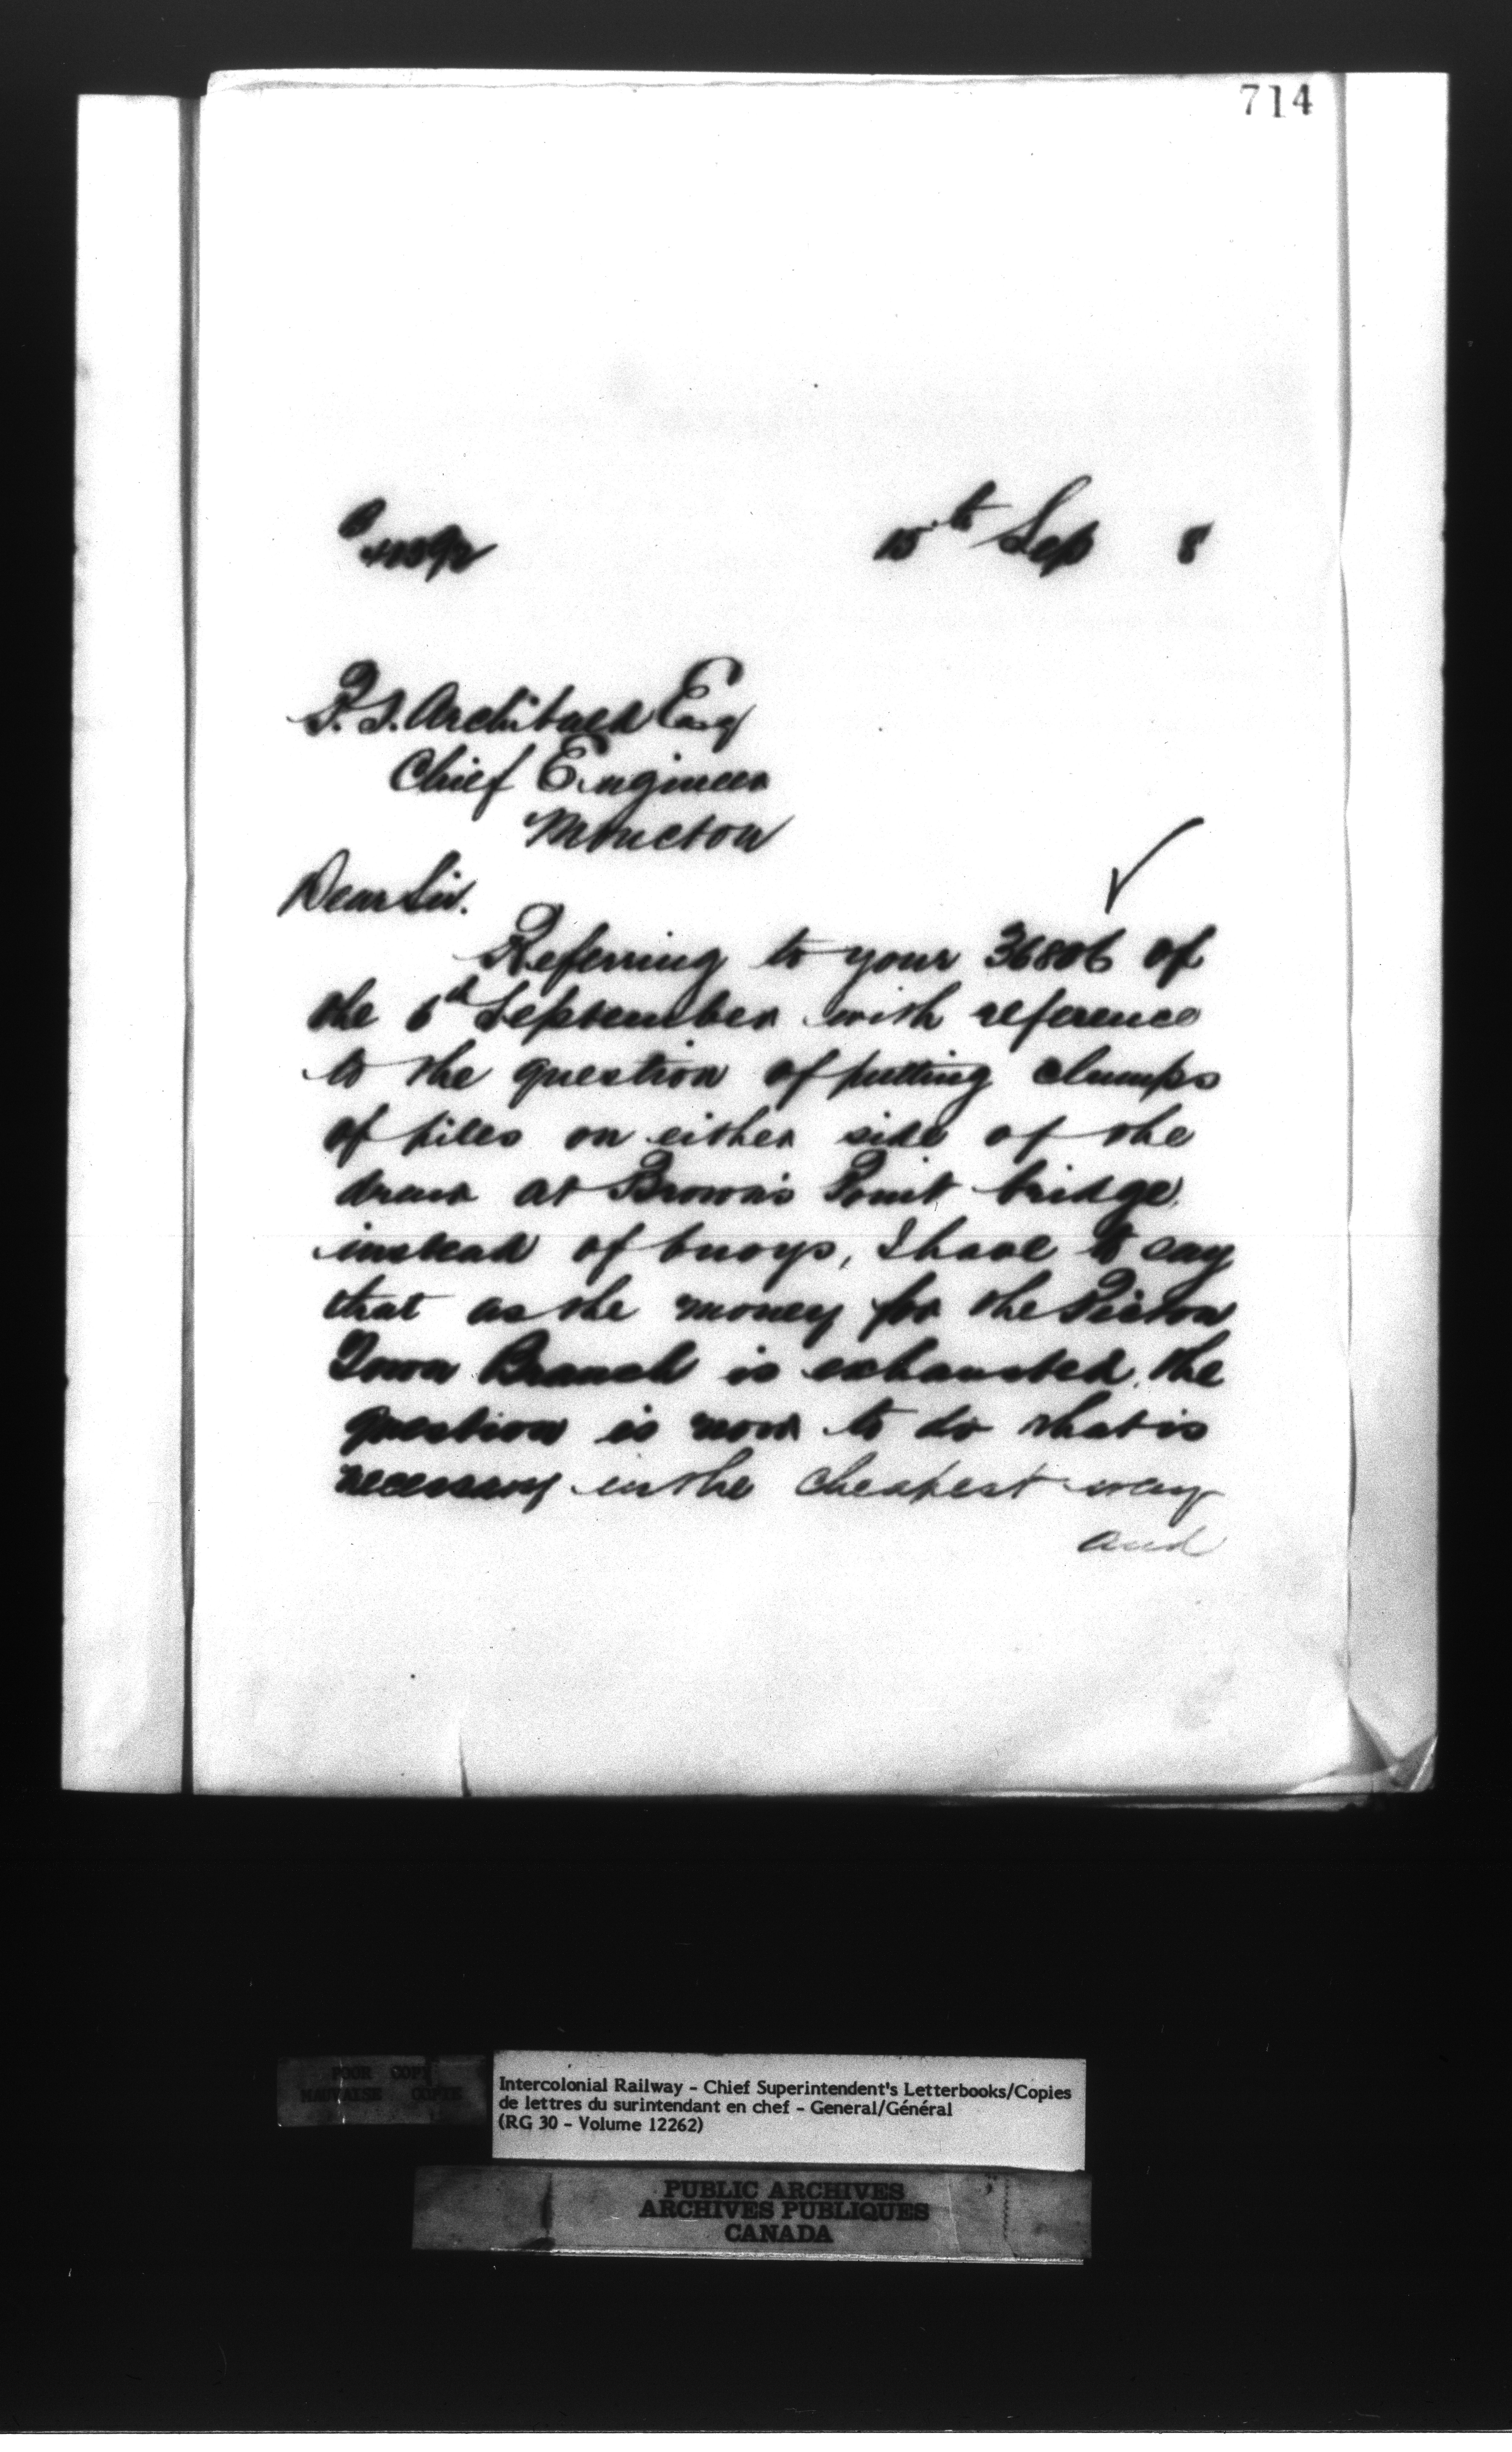 714
15th Sep 8
P. S. Archibald Esq
Chief Engineer
Moncton
Dear Sir.
Referring to your 36806 of
the 6th September with reference
to the question of putting clumps
of piles on either side of the
draw at Brown's Point bridge
instead of buoys, I have to say
that as the money for the Pictou
Town Branch is exhausted, the
question is now to do what is
necessary in the cheapest way
and
POOR COPY
MAUVAISE COPIE
Intercolonial Railway - Chief Superintendent's Letterbooks/Copies
de lettres du surintendant en chef - General/Général
(RG 30 - Volume 12262)
PUBLIC ARCHIVES
ARCHIVES PUBLIQUES
CANADA